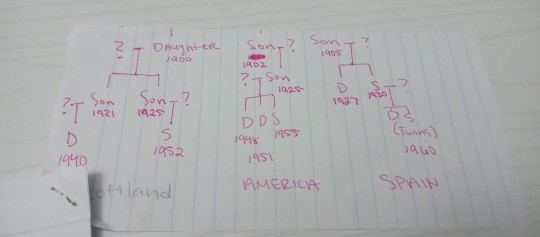 ? DAughter Son ? Son ?
1900 1902 1905
? Son Son ? ? Son D S ?
1921 1925 1925 1927 1930
D S D D S D S
1940 1952 1948 1955 (Twins)
1951 1960
AMERICA SPAIN